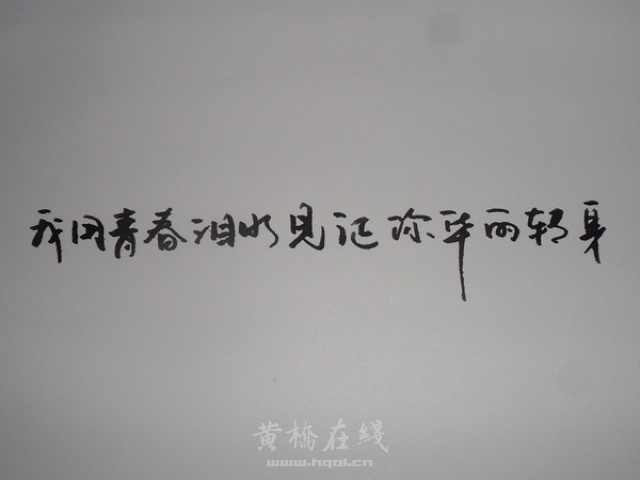 我用青春泪水见证你华丽转身
黄橋在线
www.hqol.cn